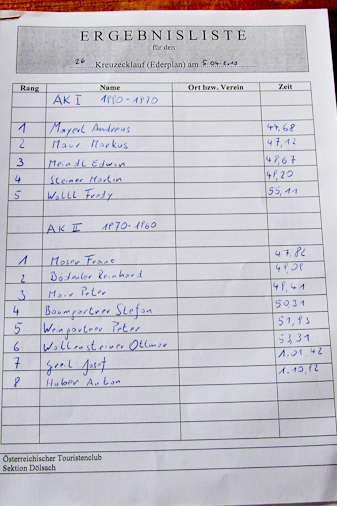 ERGEBNISLISTE
für den
26 ....Kreuzecklauf (Ederplan) am 5.04.2010
Rang Name Ort bzw. Verein Zeit
AK I 1980-1970
1 Mayerl Andreas 44,68
2 Maur Markus 47,12
3 Meindl Edwin 48,67
4 Steiner Martin 48,20
5 Waltl Fredy 55,11
AK II 1970-1960
1 Moser Franz 47,82
2 Reinhard
3 Mair Peter 48,41
4 Baumgartner Stefan 50,31
5 Weingartner Peter 51,93
6 Wallensteiner Ottmar 53,31
7 Josef 1.01,42
8 Huber Anton 1.10,82
Österreichischer Touristenclub
Sektion Dölsach